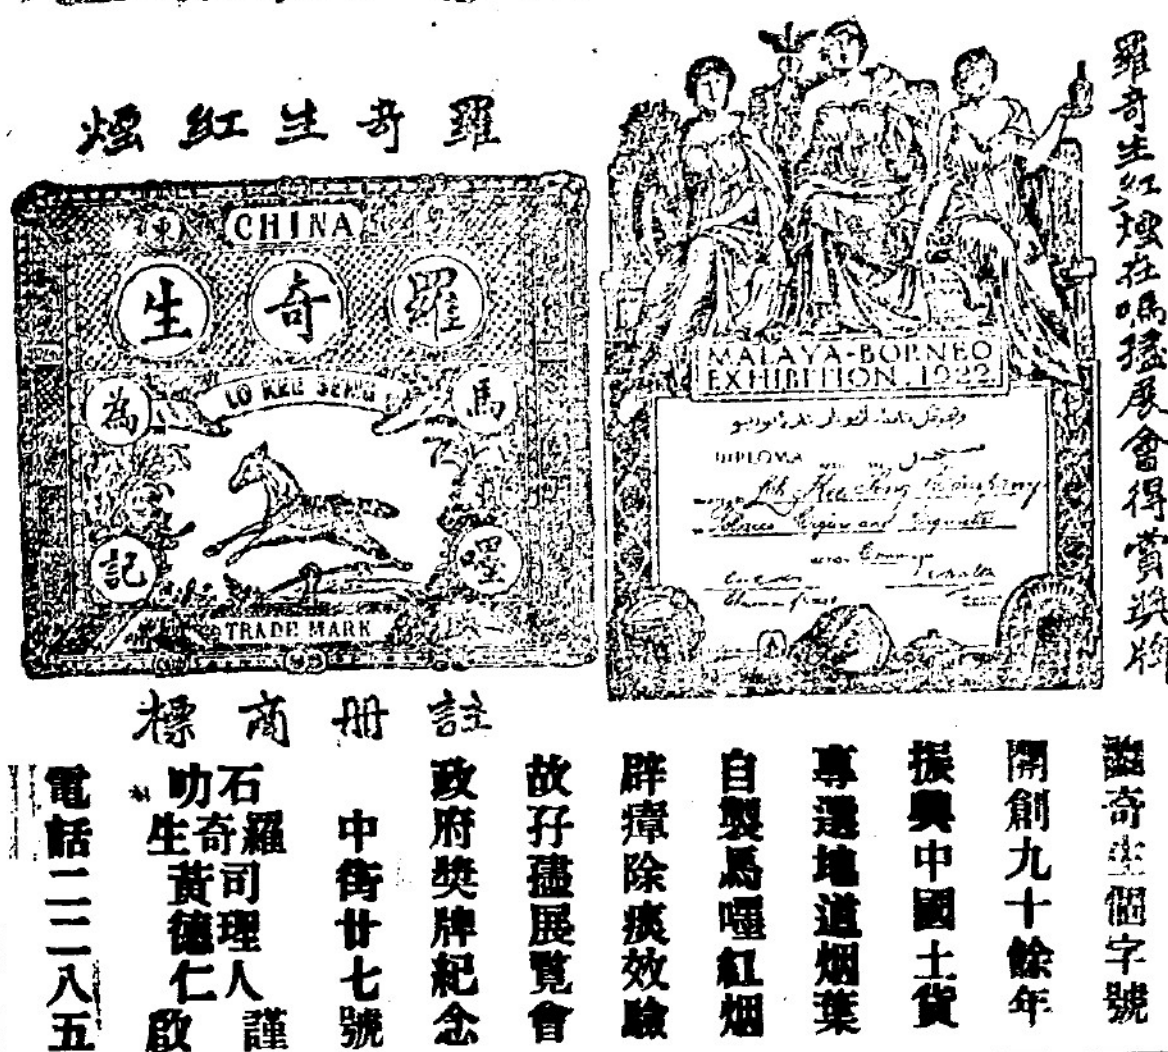 羅奇生紅煙
CHINA
羅奇生
LO KEE SENG
馬嘿為記
TRADE MARK
註冊商標
羅奇生紅煙在嗎展會得賞獎牌
MALAYA-BORNEO
EXHIBITION, 1922
DIPLOMA
羅奇生個字號
開創九十餘年
振興中國土貨
專選地道烟葉
自製馬嘿紅烟
辟瘴除痰效驗
故孖展覽會
政府獎牌紀念
中街廿七號
石叻
羅奇生
司理人
黃德仁
謹啟
電話二二八五